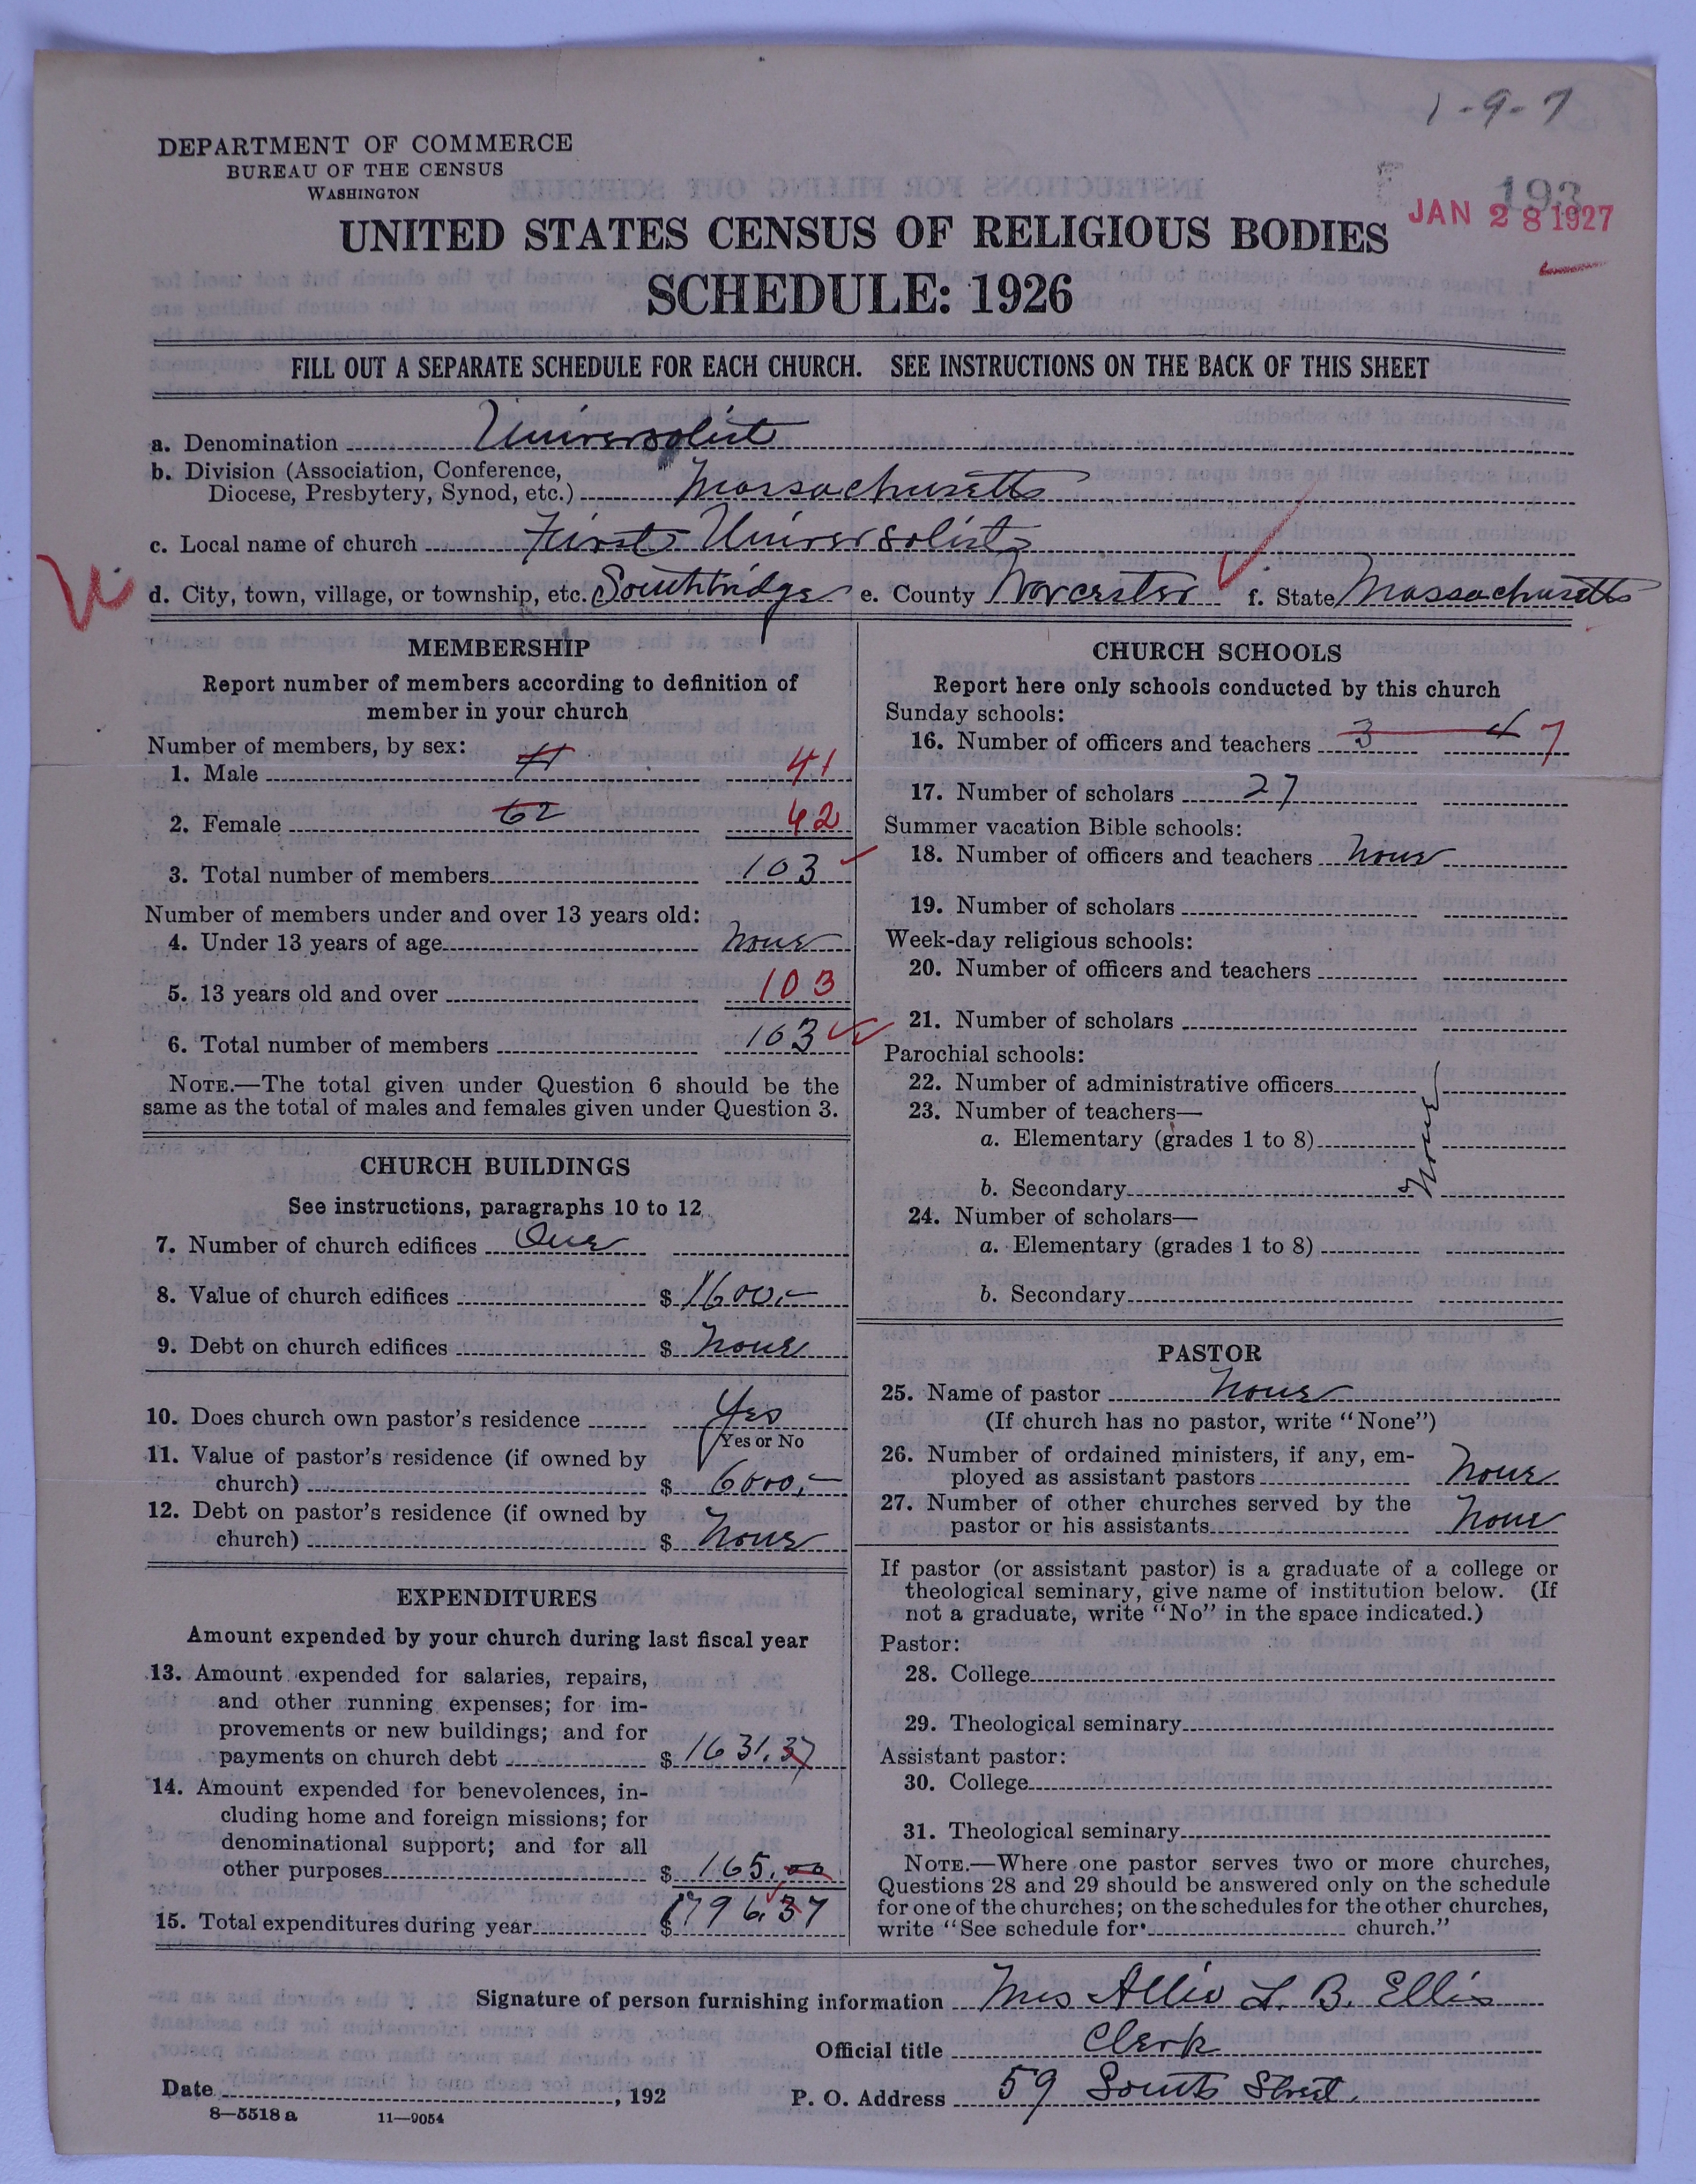 1-9-7
DEPARTMENT OF COMMERCE
BUREAU OF THE CENSUS
WASHINGTON
193
JAN 28 1927
UNITED STATES CENSUS OF RELIGIOUS BODIES
SCHEDULE: 1926
FILL OUT A SEPARATE SCHEDULE FOR EACH CHURCH. SEE INSTRUCTIONS ON THE BACK OF THIS SHEET
a. Denomination Universalist
b. Division (Association, Conference,
Diocese, Presbytery, Synod, etc.) Massachusetts
c. Local name of church First Universalist
d. City, town, village, or township, etc. Southbridge e. County Worcester f. State Massachusetts
MEMBERSHIP
Report number of members according to definition of
member in your church
Number of members, by sex:
1. Male 41 41
2. Female 62 62
3. Total number of members 103
Number of members under and over 13 years old:
4. Under 13 years of age None
5. 13 years old and over 103
6. Total number of members 103
NOTE.—The total given under Question 6 should be the
same as the total of males and females given under Question 3.
CHURCH BUILDINGS
See instructions, paragraphs 10 to 12
7. Number of church edifices One
8. Value of church edifices $ 1600.—
9. Debt on church edifices $ None
10. Does church own pastor's residence Yes
Yes or No
11. Value of pastor's residence (if owned by
church) $ 6000.—
12. Debt on pastor's residence (if owned by
church) $ None
EXPENDITURES
Amount expended by your church during last fiscal year
13. Amount expended for salaries, repairs,
and other running expenses; for im-
provements or new buildings; and for
payments on church debt $ 1631.37
14. Amount expended for benevolences, in-
cluding home and foreign missions; for
denominational support; and for all
other purposes $ 165.00
15. Total expenditures during year $ 1796.37
CHURCH SCHOOLS
Report here only schools conducted by this church
Sunday schools:
16. Number of officers and teachers 3 4 7
17. Number of scholars 27
Summer vacation Bible schools:
18. Number of officers and teachers None
19. Number of scholars
Week-day religious schools:
20. Number of officers and teachers
21. Number of scholars
Parochial schools:
22. Number of administrative officers
23. Number of teachers—
a. Elementary (grades 1 to 8)
None
b. Secondary
24. Number of scholars—
a. Elementary (grades 1 to 8)
b. Secondary
PASTOR
25. Name of pastor None
(If church has no pastor, write "None")
26. Number of ordained ministers, if any, em-
ployed as assistant pastors None
27. Number of other churches served by the
pastor or his assistants None
If pastor (or assistant pastor) is a graduate of a college or
theological seminary, give name of institution below. (If
not a graduate, write "No" in the space indicated.)
Pastor:
28. College
29. Theological seminary
Assistant pastor:
30. College
31. Theological seminary
NOTE.—Where one pastor serves two or more churches,
Questions 28 and 29 should be answered only on the schedule
for one of the churches; on the schedules for the other churches,
write "See schedule for church."
Signature of person furnishing information Mrs Allie L. B. Ellis
Official title Clerk
Date , 192 P. O. Address 59 South Street
8—5518 a 11—9054